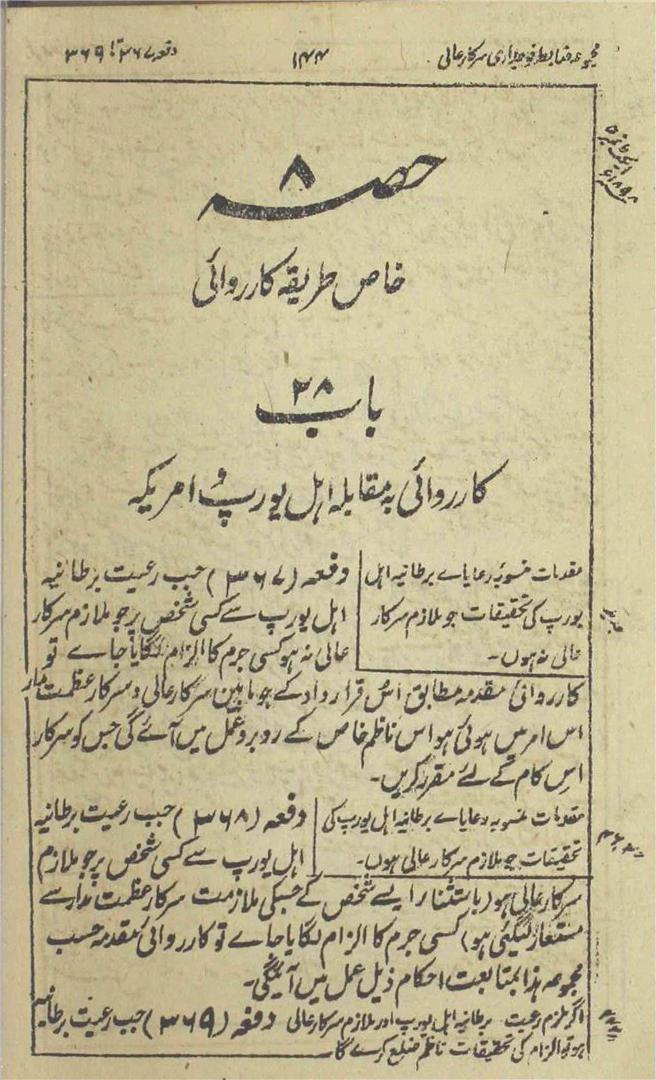 مجموعہ ضابطہ فوجداری سرکار عالی
۱۴۴
دفعہ ۳۶۷ تا ۳۶۹
حصہ ۸
خاص طریقہ کارروائی
باب ۲۸
کارروائی بمقابلہ اہل یورپ و امریکہ
مقدمات منسوبہ رعایاے برطانیہ اہل
یورپ کی تحقیقات جو ملازم سرکار
عالی نہ ہوں۔
دفعہ (۳۶۷) جب رعیت برطانیہ
اہل یورپ سے کسی شخص پر جو ملازم سرکار
عالی نہ ہو کسی جرم کا الزام لگایا جاے تو
کارروائی مقدمہ مطابق اس قرارداد کے جو مابین سرکار عالی و سرکار عظمت مدار
اس امر میں ہوئی ہو اس ناظم خاص کے روبرو عمل میں آئے گی جس کو سرکار
اس کام کے لئے مقرر کریں۔
مقدمات منسوبہ رعایاے برطانیہ اہل یورپ کی
تحقیقات جو ملازم سرکار عالی ہوں۔
دفعہ (۳۶۸) جب رعیت برطانیہ
اہل یورپ سے کسی شخص پر جو ملازم
سرکار عالی ہو (باستثنار ایسے شخص کے جسکی ملازمت سرکار عظمت مدار سے
مستعار لیگئی ہو) کسی جرم کا الزام لگایا جاے تو کارروائی مقدمہ حسب
مجموعہ ہذا بمتابعت احکام ذیل عمل میں آئیگی۔
اگر ملزم رعیت برطانیہ اہل یورپ اور ملازم سرکار عالی
ہو تو الزام کی تحقیقات ناظم ضلع کرے گا۔
دفعہ (۳۶۹) جب رعیت برطانیہ